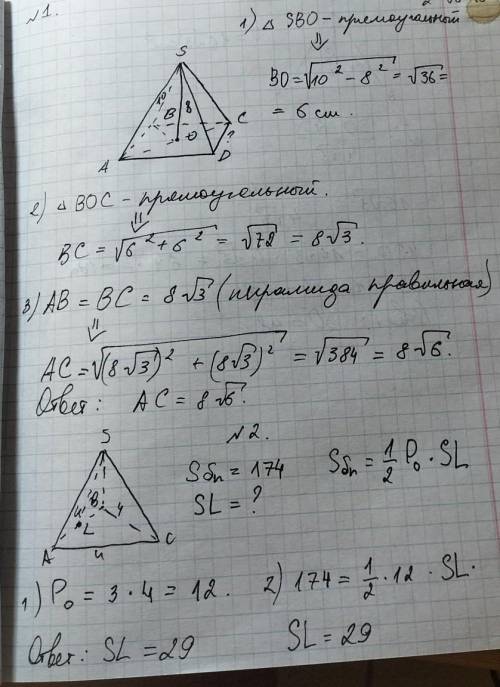 №1.
1) △ SBO - прямоугольный
⇓
BO = √10² - 8² = √36 =
= 6 cm.
S
10
8
B
C
?
O
A
D
2) △ BOC - прямоугольный.
⇓
BC = √6² + 6² = √72 = 8√3.
3) AB = BC = 8√3 (пирамида правильная)
⇓
AC = √(8√3)² + (8√3)² = √384 = 8√6.
Ответ: AC = 8√6.
№2.
S
Sбп = 174
Sбп = 1/2 P₀ · SL
SL = ?
B
4
4
L
A
4
C
1) P₀ = 3 · 4 = 12.
2) 174 = 1/2 · 12 · SL.
SL = 29
Ответ: SL = 29